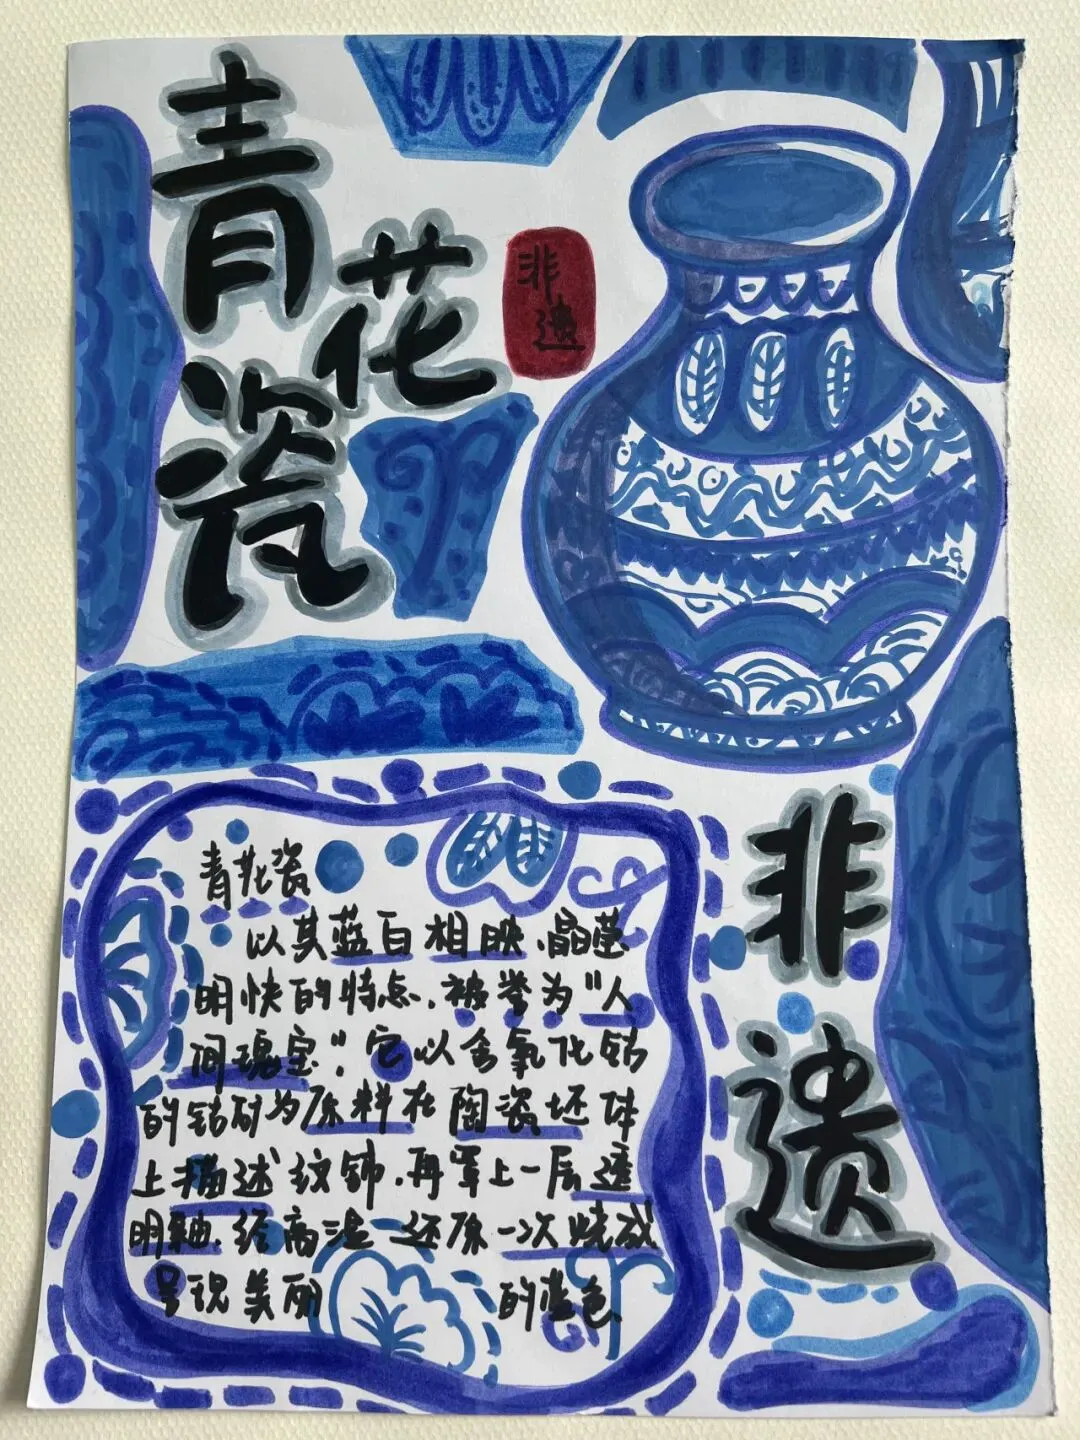 青花瓷
非遗
青花瓷
以其蓝白相映、晶莹
明快的特点,被誉为“人
间瑰宝”。它以含氧化钴
的钴矿为原料在陶瓷坯体
上描述纹饰,再罩上一层透
明釉,经高温还原一次烧成
呈现美丽的蓝色
非遗